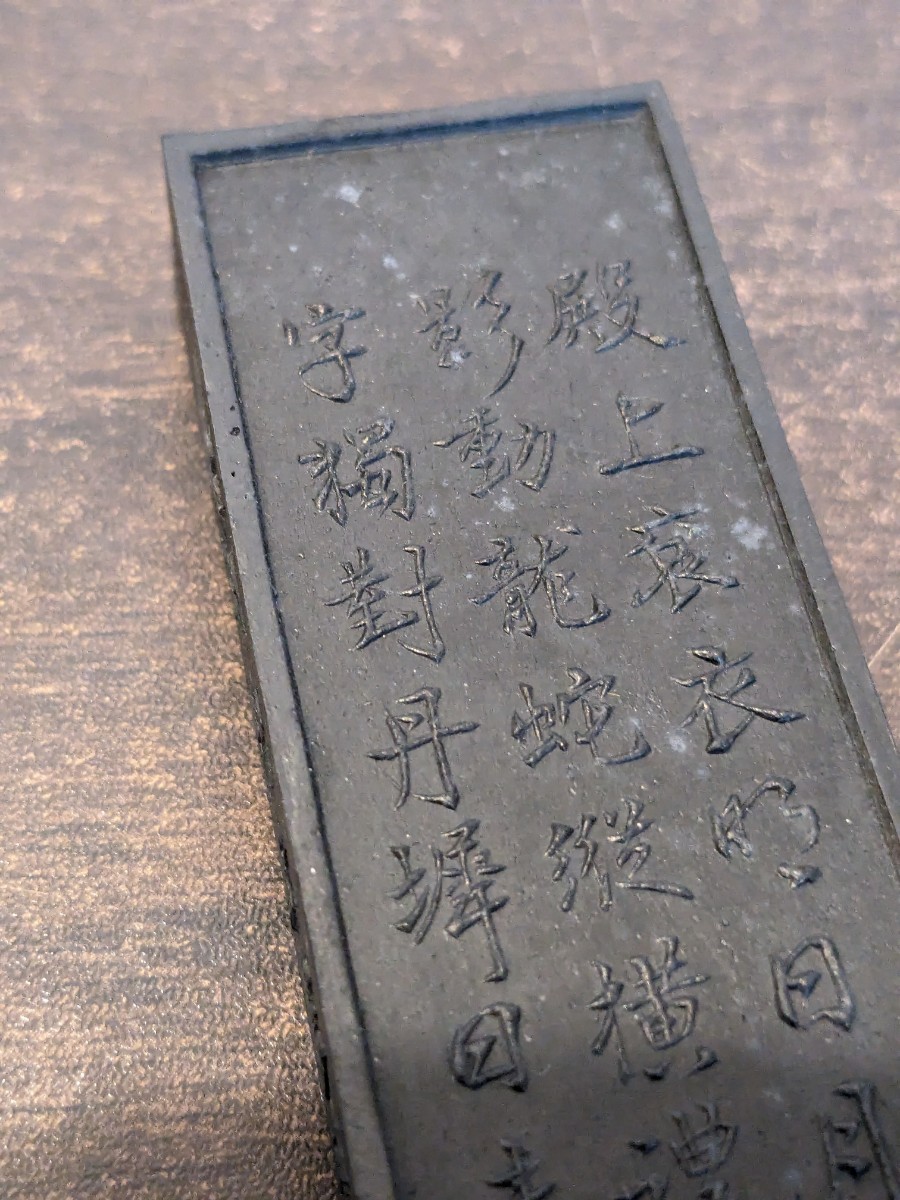 殿上袞衣明日月
影動龍蛇縱橫禮
字獨對丹墀日